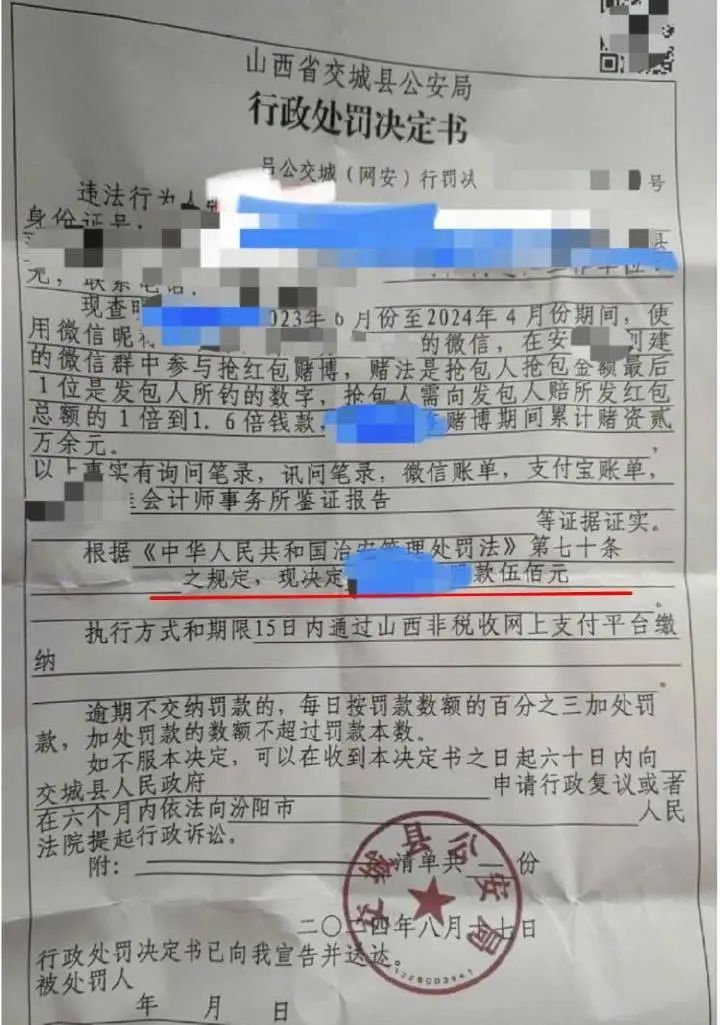 山西省交城县公安局
行政处罚决定书
吕公交城（网安）行罚决 号
违法行为人
身份证号：
县
元，联系电话： 工作单位：
现查明 2023年6月份至2024年4月份期间，使
用微信昵称 的微信，在安 创建
的微信群中参与抢红包赌博，赌法是抢包人抢包金额最后
1位是发包人所钓的数字，抢包人需向发包人赔所发红包
总额的1倍到1.6倍钱款， 在赌博期间累计赌资贰
万余元。
以上事实有询问笔录，讯问笔录，微信账单，支付宝账单，
会计师事务所鉴证报告
等证据证实。
根据《中华人民共和国治安管理处罚法》第七十条
之规定，现决定 罚款伍佰元
。
执行方式和期限15日内通过山西非税收网上支付平台缴
纳 。
逾期不交纳罚款的，每日按罚款数额的百分之三加处罚
款，加处罚款的数额不超过罚款本数。
如不服本决定，可以在收到本决定书之日起六十日内向
交城县人民政府 申请行政复议或者
在六个月内依法向汾阳市 人民
法院提起行政诉讼。
附： 清单共 份
交城县公安局
二〇二四年八月 七日
行政处罚决定书已向我宣告并送达。
被处罚人
年 月 日